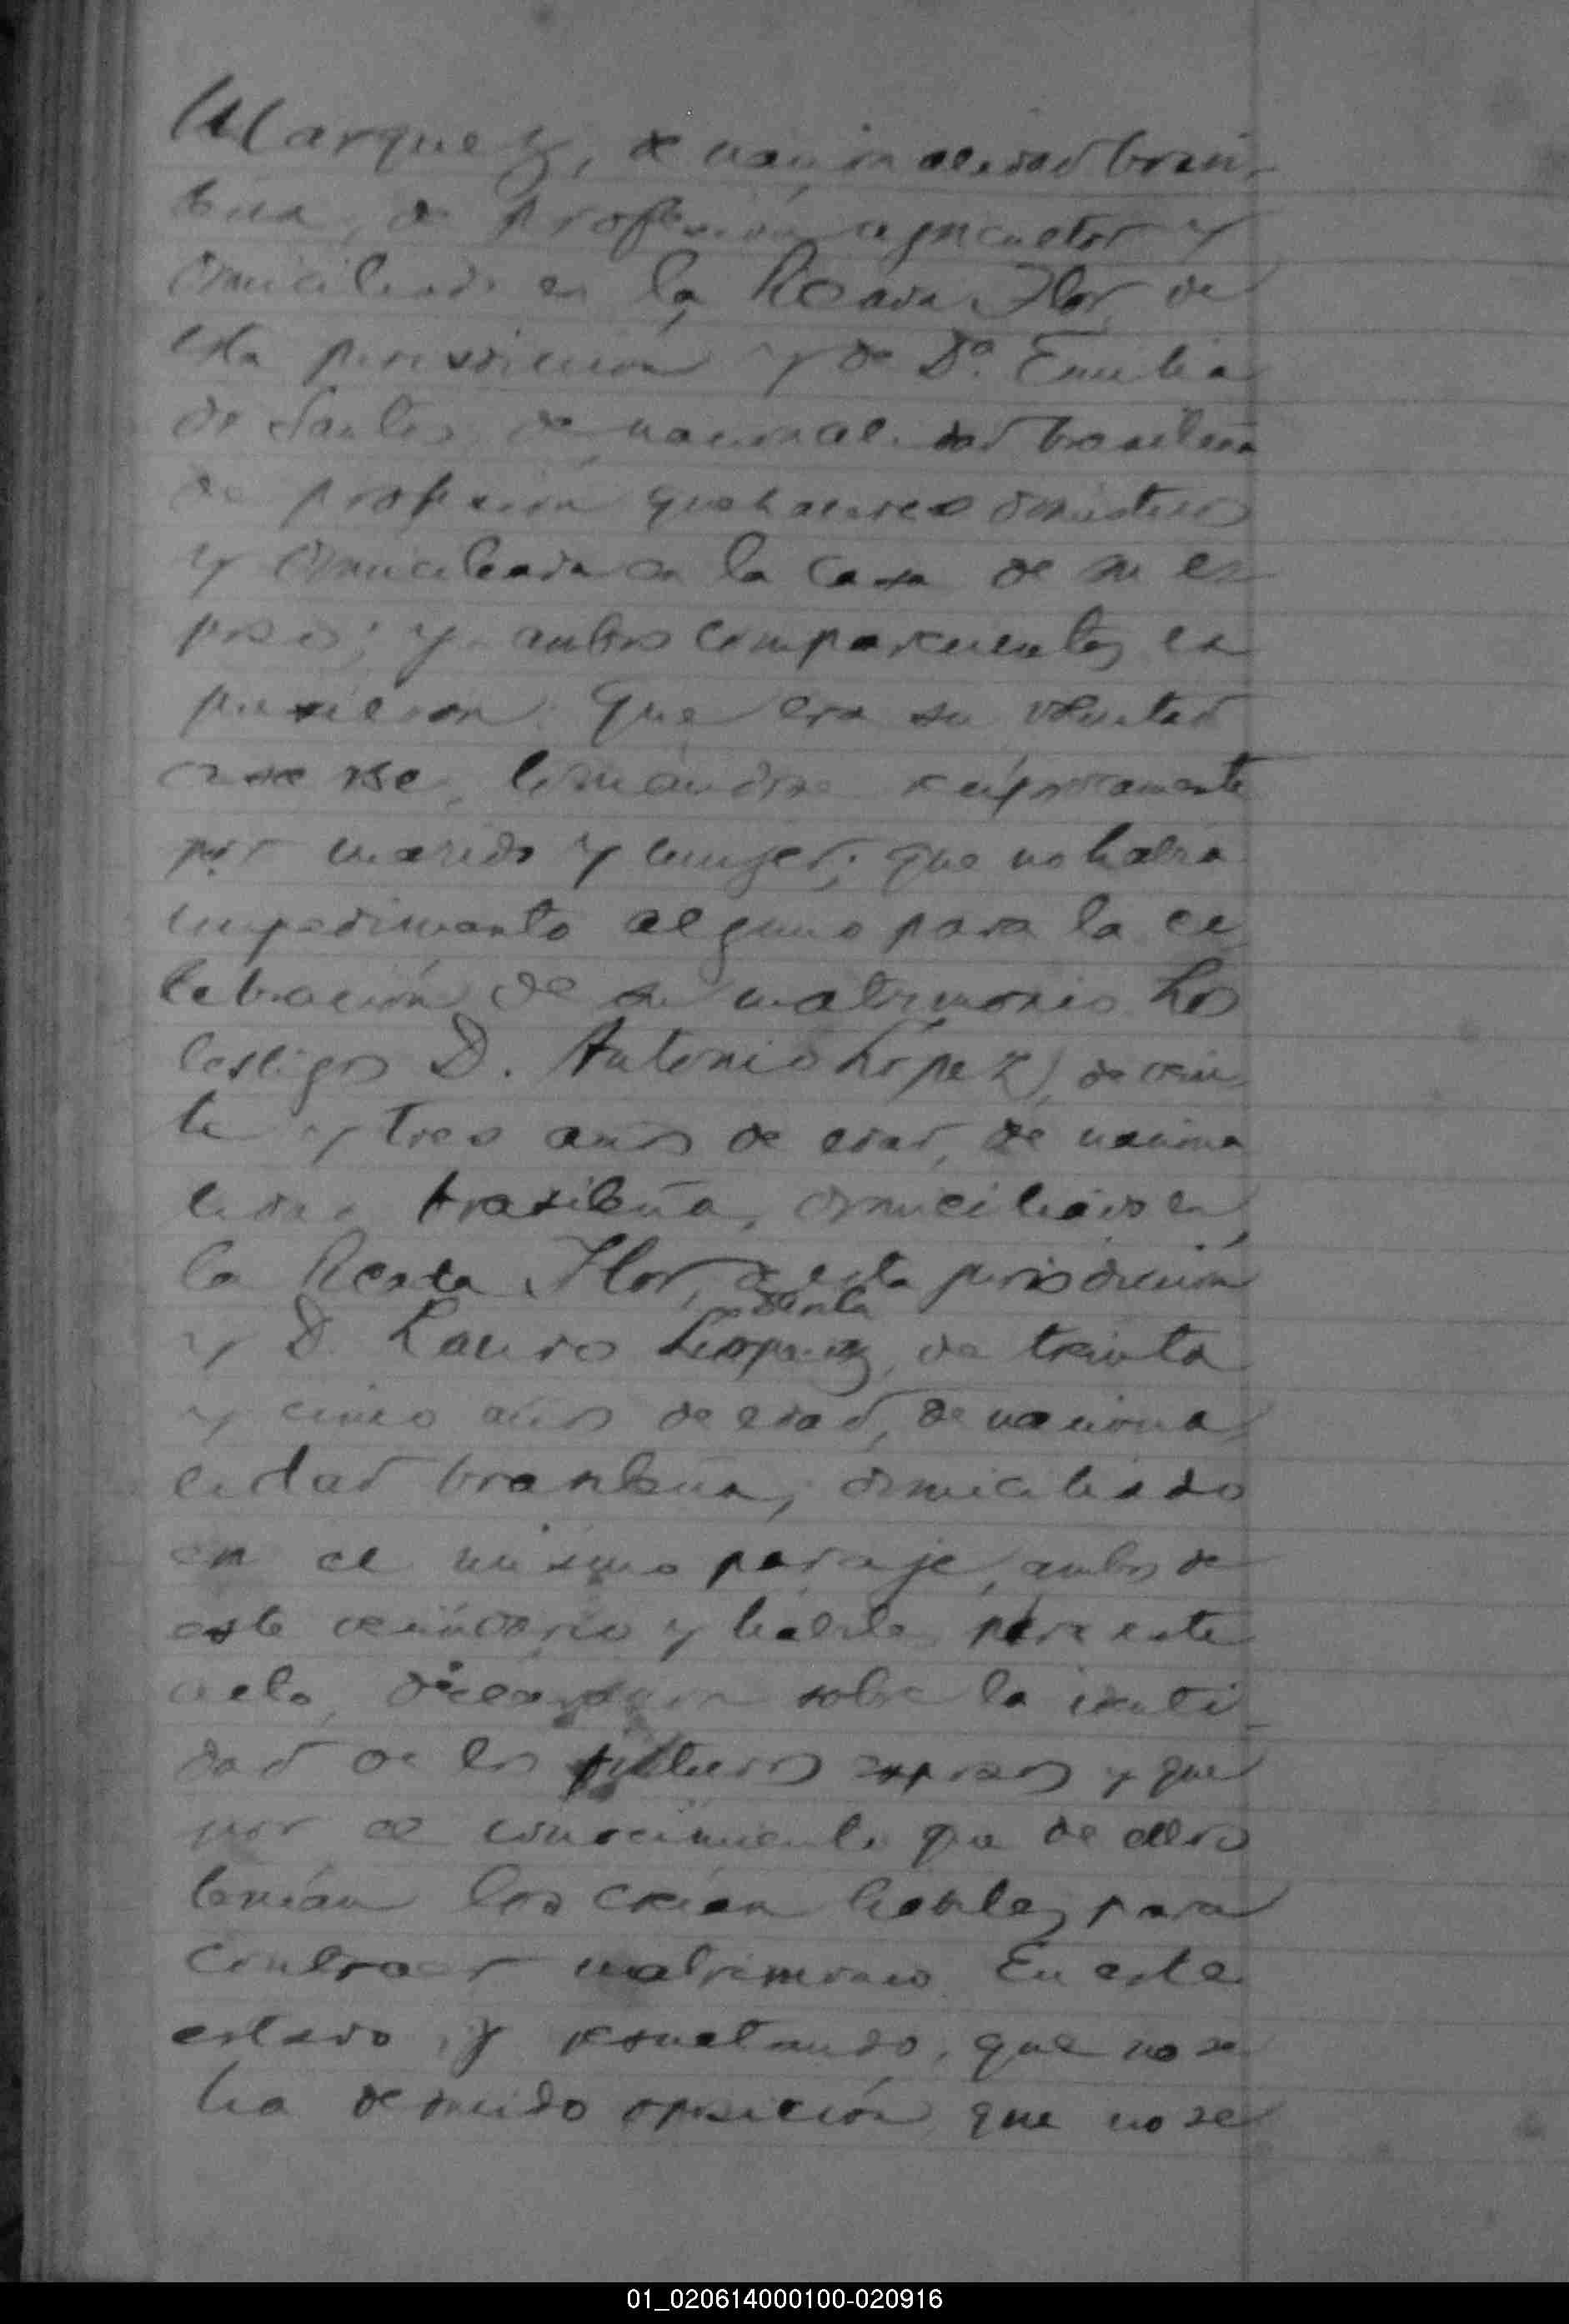 Marquez, de nacionalidad brasi-
leña, de profesión agricultor y
domiciliado en la Rosada Flor de
esta jurisdicción y de Dª. Emilia
de Santos, de nacionalidad brasileña
de profesión quehaceres domésticos
y domiciliada en la casa de su es
poso; y ambos comparecientes ex
pusieron: Que era su voluntad
casarse, tomándose recíprocamente
por marido y mujer; que no había
impedimento alguno para la ce
lebración de su matrimonio. Los
testigos D. Antonio López, de vein
te y tres años de edad, de naciona
lidad brasileña, domiciliado en
la Flor, de esta jurisdicción
y D. Lauro de treinta
y cinco años de edad, de naciona
lidad brasileña, domiciliado
en el mismo paraje, ambos de
este vecindario y hábiles para este
acto, declararon sobre la identi-
dad de los futuros esposos y que
por el conocimiento que de ellos
tenían los creían hábiles para
contraer matrimonio. En este
estado, y resultando, que no se
ha deducido oposición, que no se
01_020614000100-020916